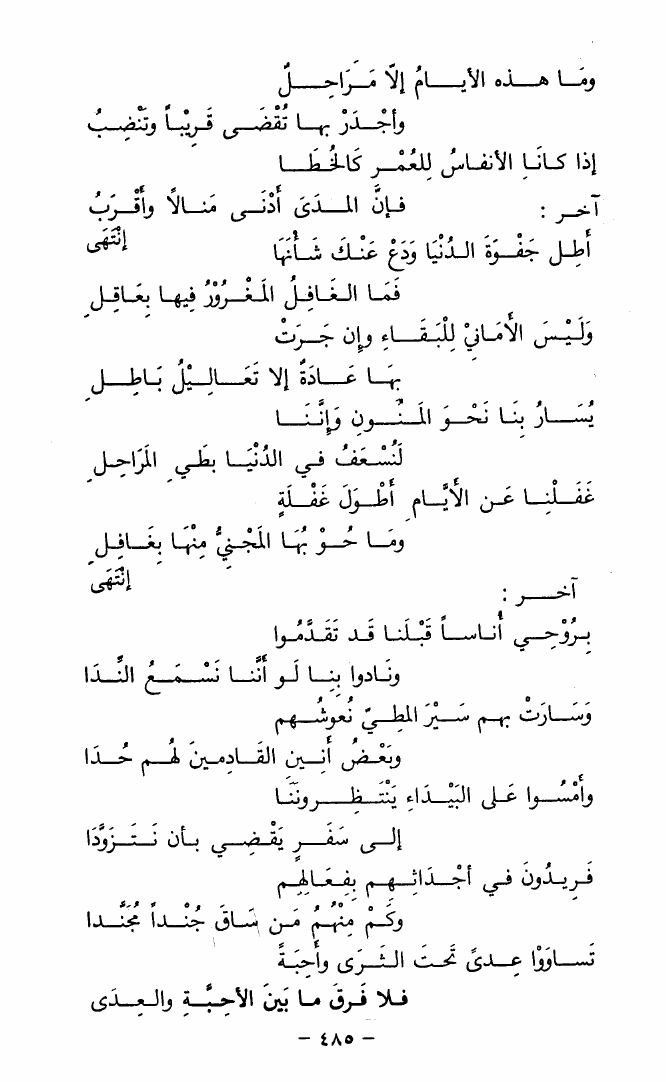 ومَا هـذه الأيـامُ إلّا مَـرَاحِـلٌ
وأجْـدَرْ بهـا تُقْضَـى قَـرِيْباً وتَنْضِـبُ
إذا كـانَـا الأنفـاسُ لِلعُمْـرِ كَالخُطَـا
آخـر : فـإنَّ المـدَى أدْنَـى مَنـالًا وأقْـرَبُ
أَطِـل جَفْـوَةَ الـدُنْيَا وَدَعْ عَنْـكَ شَـأنَهَا إنْتَهَى
فَمَـا الغَـافِـلُ المغْـرُوْرُ فِيهـا بِعَـاقِـلِ
وَلَيْـسَ الأَمَـانِيْ لِلْبَقَـاءِ وإن جَـرَتْ
بِهَـا عَـادَةٌ إلا تَعَـالِيْـلُ بَـاطِـلِ
يُسَـارُ بِنَـا نَحْـوَ المنُـونِ وَإنَّنَـا
لَنُسْـعَفُ فـي الدُنْيَـا بطَي المَرَاحِـلِ
غَفَـلْنَـا عَـنِ الأَيَّـامِ أَطْـوَلَ غَفْـلَةٍ
ومَـا حُـوْبُهَـا المَجْنِيُّ مِنْهَـا بِغَـافِـلِ
آخـر : إنْتَهَى
بِـرُوْحِـي أُناسـاً قَبْلَنـا قَـد تَقَدَّمُـوا
ونَـادوا بِنـا لَـو أنَّنـا نَسْـمَـعُ النِّـدَا
وَسَـارَتْ بهـم سَـيْرَ المطِـيِّ نُعوشُـهـم
وبَعْـضُ أَنـينِ القَـادمـينَ لَهُـم حُـدَا
وأمْسُـوا عَلـى البَيْـدَاءِ يَنْتَـظِـرونَنَـا
إلـى سَفَـرٍ يَقْـضِـي بـأن نَـتَـزوَّدَا
فَـرِيـدُونَ فـي أجْـدَاثِـهـم بِفِعَـالِهِـم
وكَـمْ مِنْهُـمُ مَـن سَـاقَ جُنْـداً مُجَنَّـدا
تَسـاوَوْا عِـدىً تَحْتَ الثَـرَى وأحِبَـةً
فـلا فَـرقَ مـا بَينَ الأحِبَّـةِ والعِـدَى
- ٤٨٥ -